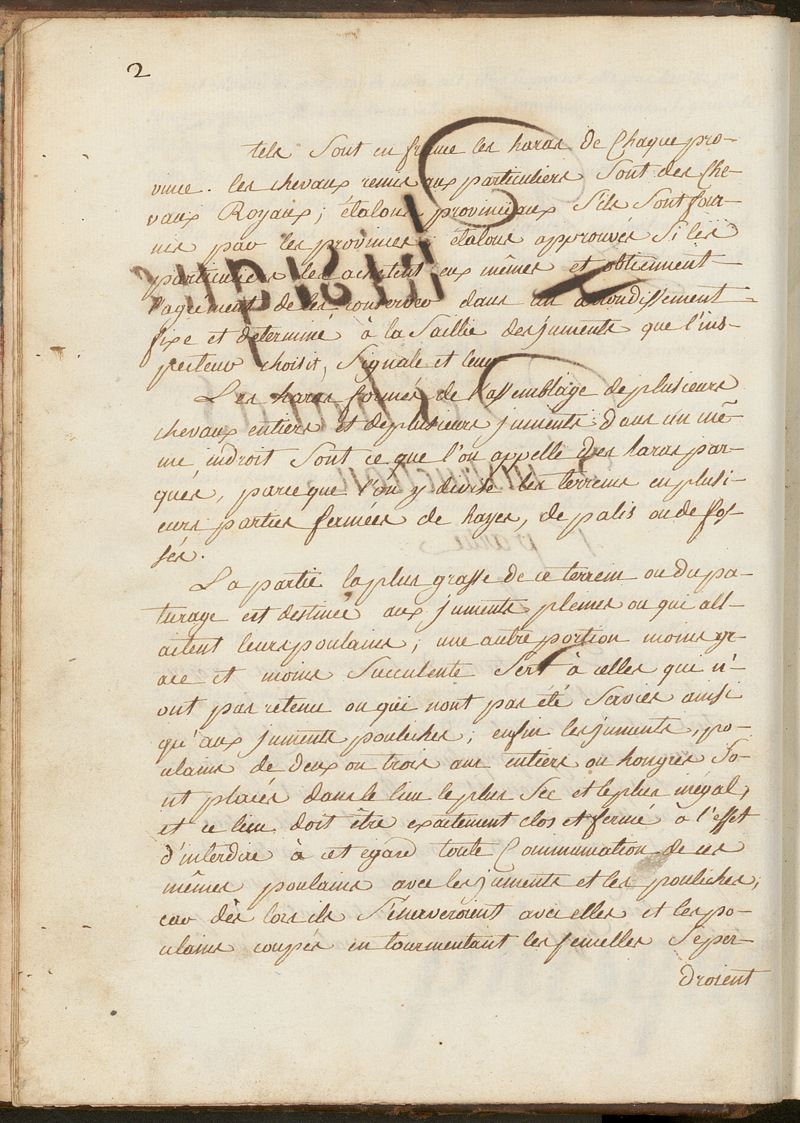 2
tels Sont en france les haras de Chaque pro-
vince. les chevaux remis aux particuliers Sont des Che-
vaux Royaux; étalons provinciaux S'ils Sont four-
nis par les provinces; étalons approuvés Si les
particuliers les achetent eux mêmes et obtiennent
l'agrément de les conserver dans un arrondissement
fixe et determiné à la Saillie des juments que l'ins-
pecteur choisit, Signale et leur
Les haras formés de l'assemblage de plusieurs
chevaux entiers et de plusieurs juments dans un mê-
me indroit Sont ce que l'on appelle des haras par-
qués, parce que l'on y divise les terreins en plusi-
eurs parties fermées de hayes, de palis ou de fos-
sés.
La partie la plus grasse de ce terrein ou du pa-
turage est destinée aux juments pleines ou qui all-
aitent leurs poulains; une autre portion moins gr-
ace et moins Succulente Sert à celles qui n'-
ont pas retenu ou qui nont pas été Servies ainsi
qu'aux juments pouliches; enfin les juments, po-
ulains de deux ou trois ans entiers ou hongres So-
nt placés dans le lieu le plus Sec et le plus inégal,
et ce lieu doit être exactement clos et fermé à l'effet
d'interdire à cet egard toute Communication de ces
mêmes poulains avec les juments et les pouliches,
car dès lors ils S'énerveroient avec elles et les po-
ulains coupés en tourmentant les femelles Se per-
droient